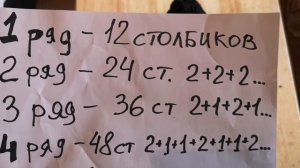 1 ряд - 12 столбиков
2 ряд - 24 ст. 2+2+2...
3 ряд - 36 ст 2+1+2+1...
4 ряд - 48 ст 2+1+1+2+1+1+2...